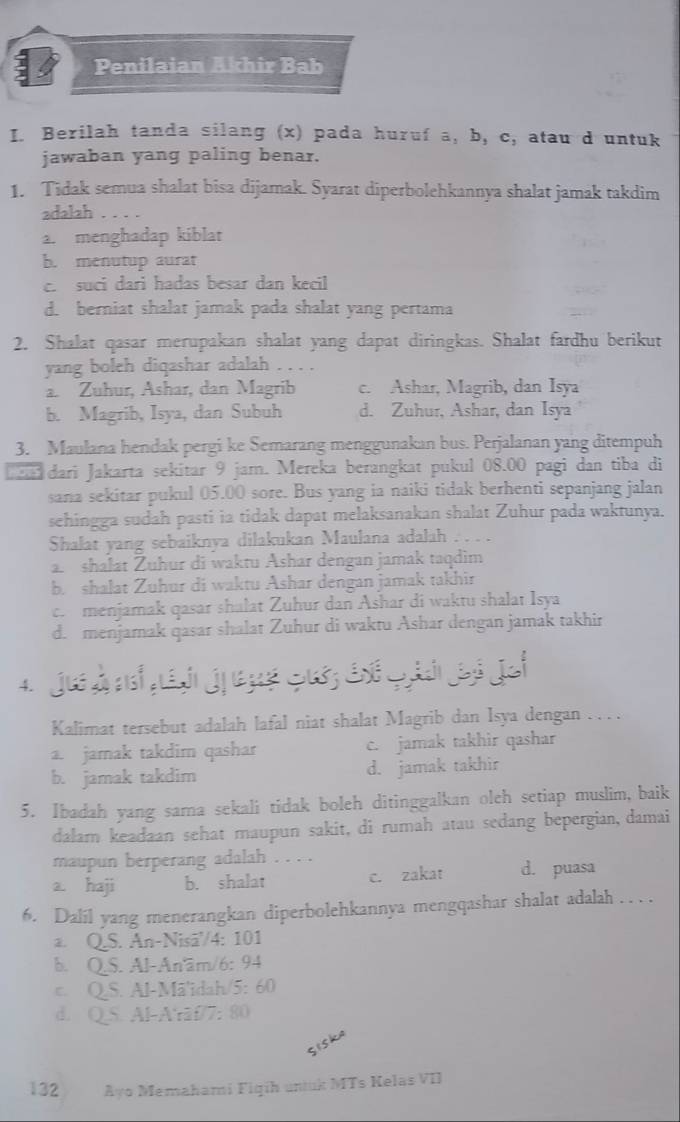 Penilaian Akhir Bab
I. Berilah tanda silang (x) pada huruf a, b, c, atau d untuk
jawaban yang paling benar.
1. Tidak semua shalat bisa dijamak. Syarat diperbolehkannya shalat jamak takdim
adalah . . . .
a. menghadap kiblat
b. menutup aurat
c. suci dari hadas besar dan kecil
d. berniat shalat jamak pada shalat yang pertama
2. Shalat qasar merupakan shalat yang dapat diringkas. Shalat fardhu berikut
yang boleh diqashar adalah . . . .
a. Zuhur, Ashar, dan Magrib c. Ashar, Magrib, dan Isya
b. Magrib, Isya, dan Subuh d. Zuhur, Ashar, dan Isya
3. Maulana hendak pergi ke Semarang menggunakan bus. Perjalanan yang ditempuh
dari Jakarta sekitar 9 jam. Mereka berangkat pukul 08.00 pagi dan tiba di
sana sekitar pukul 05.00 sore. Bus yang ia naiki tidak berhenti sepanjang jalan
sehingga sudah pasti ia tidak dapat melaksanakan shalat Zuhur pada waktunya.
Shalat yang sebaiknya dilakukan Maulana adalah . . . .
a. shalat Zuhur di waktu Ashar dengan jamak taqdim
b. shalat Zuhur di waktu Ashar dengan jamak takhir
c. menjamak qasar shalat Zuhur dan Ashar di waktu shalat Isya
d. menjamak qasar shalat Zuhur di waktu Ashar dengan jamak takhir
4. أُصَلِّ فَرْضَ الْمَغْرِبِ ثَلَاثَ رَكَعَاتٍ مَجْمُوْعًا إِلَى الْعِشَاءِ أَدَاءً لِلّٰهِ تَعَالَى
Kalimat tersebut adalah lafal niat shalat Magrib dan Isya dengan . . . .
a. jamak takdim qashar c. jamak takhir qashar
b. jamak takdim d. jamak takhir
5. Ibadah yang sama sekali tidak boleh ditinggalkan oleh setiap muslim, baik
dalam keadaan sehat maupun sakit, di rumah atau sedang bepergian, damai
maupun berperang adalah . . . .
a. haji b. shalat c. zakat d. puasa
6. Dalil yang menerangkan diperbolehkannya mengqashar shalat adalah . . . .
a. Q.S. An-Nisā'/4: 101
b. Q.S. Al-An'ām/6: 94
c. Q.S. Al-Mā'idah/5: 60
d. Q.S. Al-A'rāf/7: 80
siska
132 Ayo Memahami Fiqih untuk MTs Kelas VII